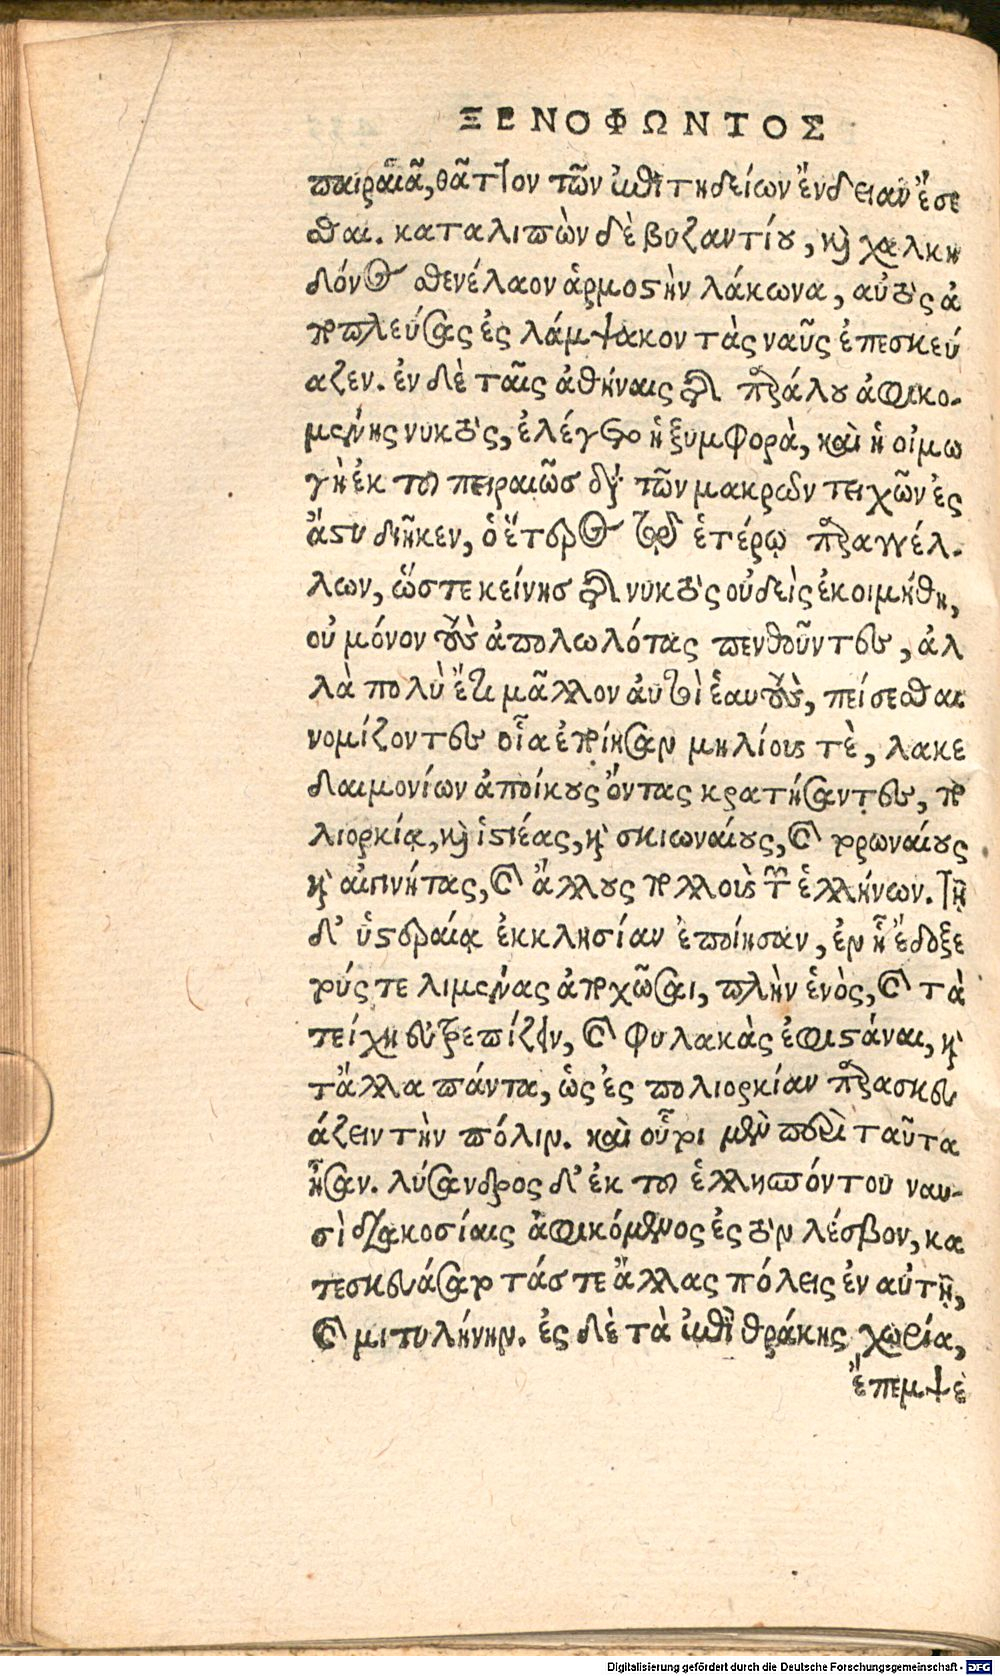 ΞΕΝΟΦΩΝΤΟΣ
παιραιᾶ, θᾶττον τῶν ἐπιτηδείων ἔνδειαν ἔσε
σθαι. καταλιπὼν δὲ βυζαντίου, καὶ χαλκη
δόνος σθενέλαον ἁρμοστὴν λάκωνα, αὐτὸς ἀ
ποπλεύσας ἐς λάμψακον τὰς ναῦς ἐπεσκεύ
αζεν. ἐν δὲ ταῖς ἀθήναις τῆς παράλου ἀφικο-
μένης νυκτὸς, ἐλέγετο ἡ ξυμφορὰ, καὶ ἡ οἰμω
γὴ ἐκ τοῦ πειραιῶς διὰ τῶν μακρῶν τειχῶν ἐς
ἄστυ διῆκεν, ὁ ἕτερος τῷ ἑτέρῳ παραγγέλ-
λων, ὥστε κείνης τῆς νυκτὸς οὐδεὶς ἐκοιμήθη,
οὐ μόνον τοὺς ἀπολωλότας πενθοῦντες, ἀλ
λὰ πολὺ ἔτι μᾶλλον αὐτοὶ ἑαυτοὺς, πείσεσθαι
νομίζοντες οἷα ἐποίησαν μηλίους τὲ, λακε
δαιμονίων ἀποίκους ὄντας κρατήσαντες, πο
λιορκίᾳ, καὶ ἱστιέας, καὶ σκιωναίους, καὶ τορωναίους
καὶ αἰγινήτας, καὶ ἄλλους πολλοὺς τῶν ἑλλήνων. τῇ
δ' ὑστεραίᾳ ἐκκλησίαν ἐποίησαν, ἐν ᾗ ἔδοξε
τούς τε λιμένας ἀποχῶσαι, πλὴν ἑνὸς, καὶ τὰ
τείχη εὐτρεπίζειν, καὶ φυλακὰς ἐφιστάναι, καὶ
τἄλλα πάντα, ὡς ἐς πολιορκίαν παρασκευ
άζειν τὴν πόλιν. καὶ οὗτοι μὲν περὶ ταῦτα
ἦσαν. λύσανδρος δ' ἐκ τοῦ ἑλλησπόντου ναυ-
σὶ διακοσίαις ἀφικόμενος ἐς τὴν λέσβον, κα
τεσκευάσατο τάς τε ἄλλας πόλεις ἐν αὐτῇ,
καὶ μιτυλήνην. ἐς δὲ τὰ ἐπὶ θράκης χωρία,
ἔπεμψε
Digitalisierung gefördert durch die Deutsche Forschungsgemeinschaft - DFG